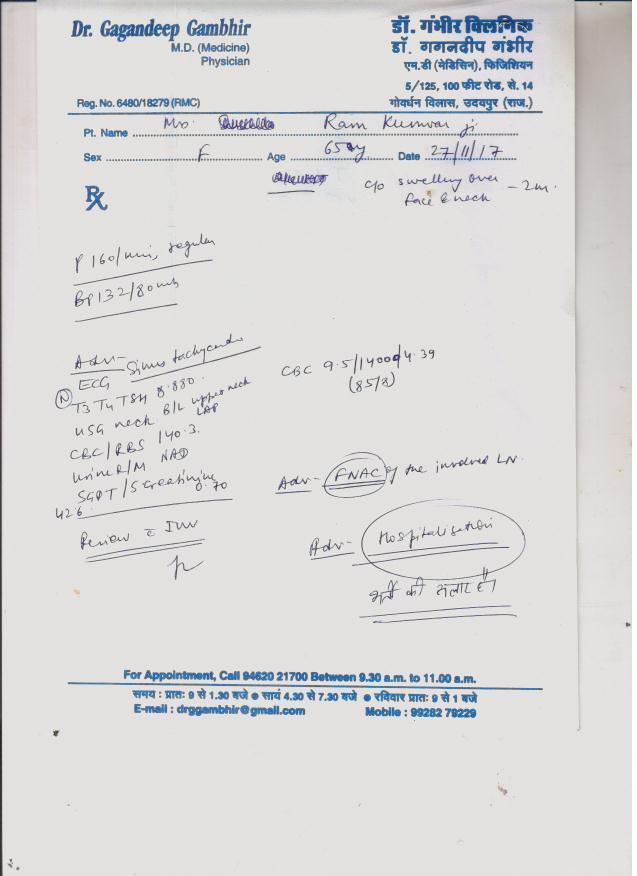 Dr. Gagandeep Gambhir
M.D. (Medicine)
Physician
Reg. No. 6480/18279 (RMC)
डॉ. गंभीर क्लिनिक
डॉ. गगनदीप गंभीर
एम.डी (मेडिसिन), फिजिशियन
5/125, 100 फीट रोड, से. 14
गोवर्धन विलास, उदयपुर (राज.)
Pt. Name Mrs. Ram Kunwar ji
Sex F Age 65y Date 27/11/17
Rx
c/o swelling over face & neck - 2m.
P 160/min, regular
BP 132/80
Adv-
ECG Sinus tachycardia
(N) T3 T4 TSH 8.880.
USG neck B/L upper neck LAP
CBC/RBS 140.3.
Urine R/M NAD
SGPT/S creatinine 0.70
42.6
Review c Inv
CBC 9.5/14000/4.39
(85/8)
Adv- FNAC of the involved LN.
Adv- Hospitalisation
भर्ती की सलाह है।
For Appointment, Call 94620 21700 Between 9.30 a.m. to 11.00 a.m.
समय : प्रातः 9 से 1.30 बजे ● सायं 4.30 से 7.30 बजे ● रविवार प्रातः 9 से 1 बजे
E-mail : drggambhir@gmail.com Mobile : 99282 79229